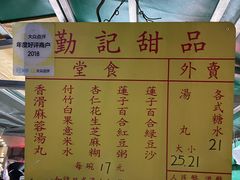 大众点评
年度好评商户
2018
勤記甜品
外賣
各式糖水
21
湯丸
大小
25,21
堂食
蓮子百合綠豆沙
蓮子百合紅豆粥
杏仁花生芝麻糊
付竹白果意米水
香滑麻蓉湯丸
每碗17元